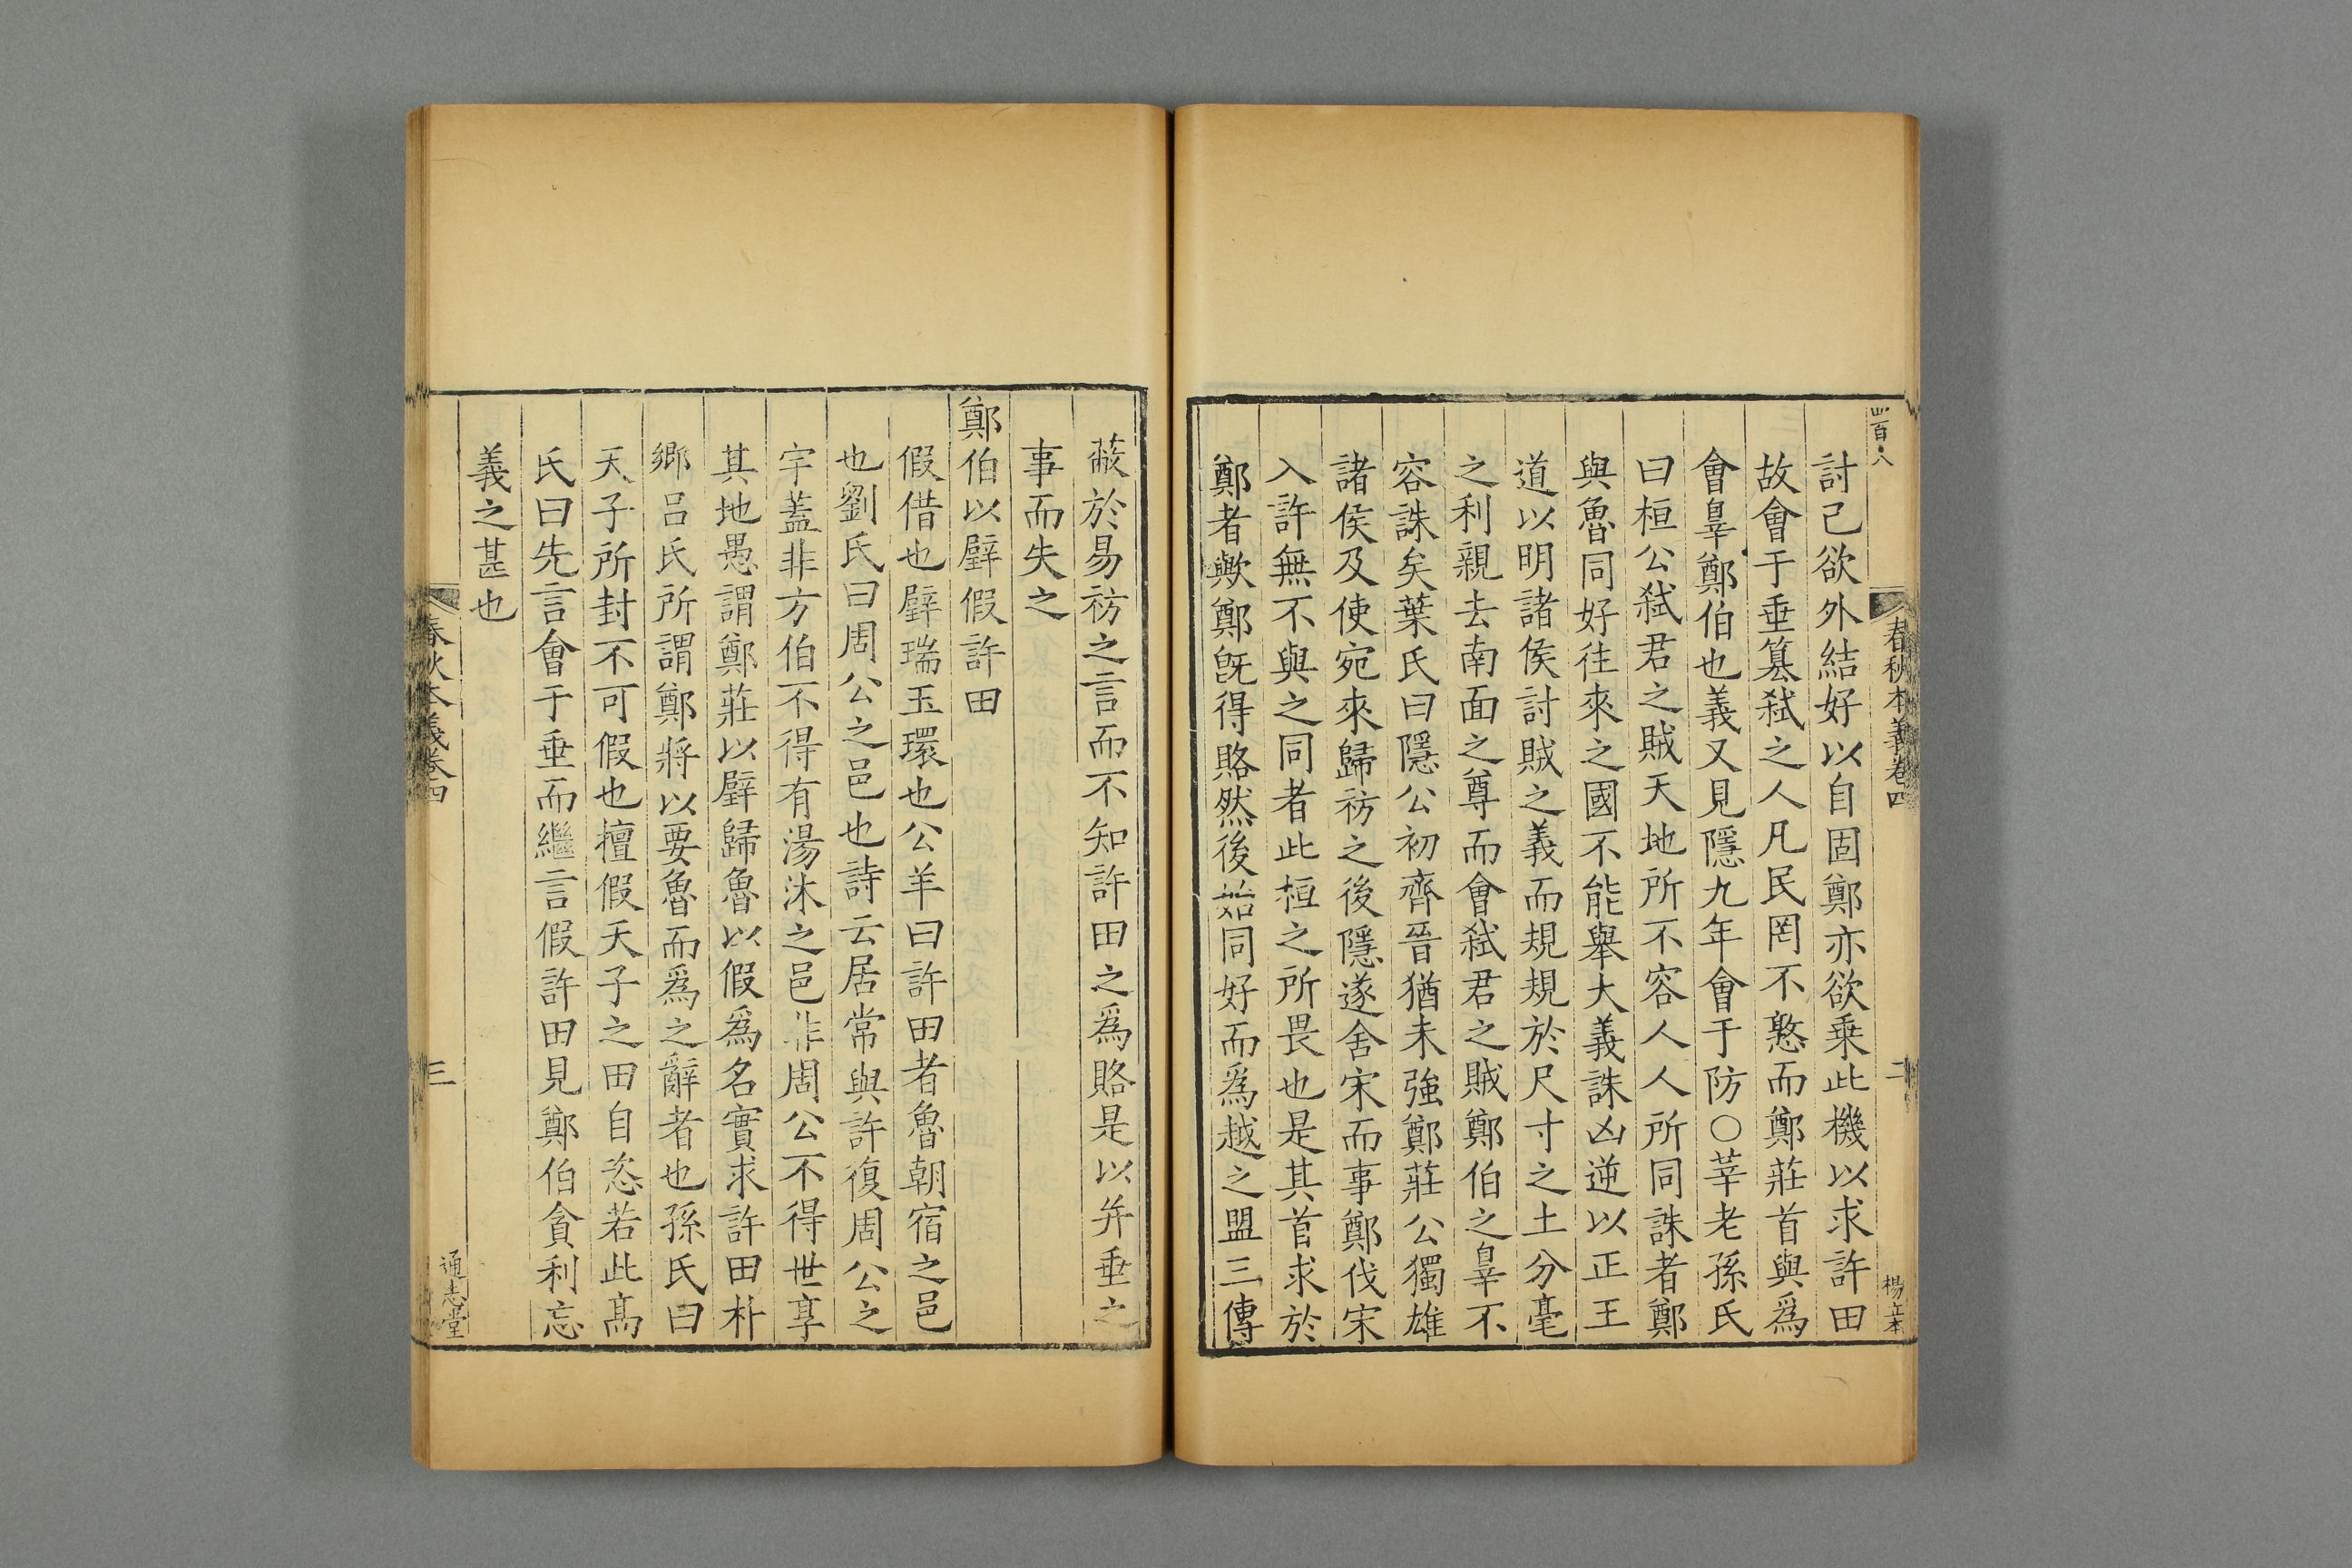 春秋本義卷四
二
楊立本
討己欲外結好以自固鄭亦欲乗此機以求許田
故會于垂簒弑之人凡民罔不憝而鄭莊首與爲
會辠鄭伯也義又見隱九年會于防○莘老孫氏
曰桓公弑君之賊天地所不容人人所同誅者鄭
與魯同好往來之國不能舉大義誅凶逆以正王
道以明諸侯討賊之義而規規於尺寸之土分毫
之利親去南面之尊而會弑君之賊鄭伯之辠不
容誅矣葉氏曰隱公初齊晉猶未強鄭莊公獨雄
諸侯及使宛來歸祊之後隱遂舍宋而事鄭伐宋
入許無不與之同者此桓之所畏也是其首求於
鄭者歟鄭旣得賂然後始同好而爲越之盟三傳
蔽於易祊之言而不知許田之爲賂是以并垂之
事而失之
鄭伯以璧假許田
假借也璧瑞玉環也公羊曰許田者魯朝宿之邑
也劉氏曰周公之邑也詩云居常與許復周公之
宇蓋非方伯不得有湯沐之邑非周公不得世享
其地愚謂鄭莊以璧歸魯以假爲名實求許田朴
鄉呂氏所謂鄭將以要魯而爲之辭者也孫氏曰
天子所封不可假也擅假天子之田自恣若此髙
氏曰先言會于垂而繼言假許田見鄭伯貪利忘
義之甚也
春秋本義卷四
三
通志堂